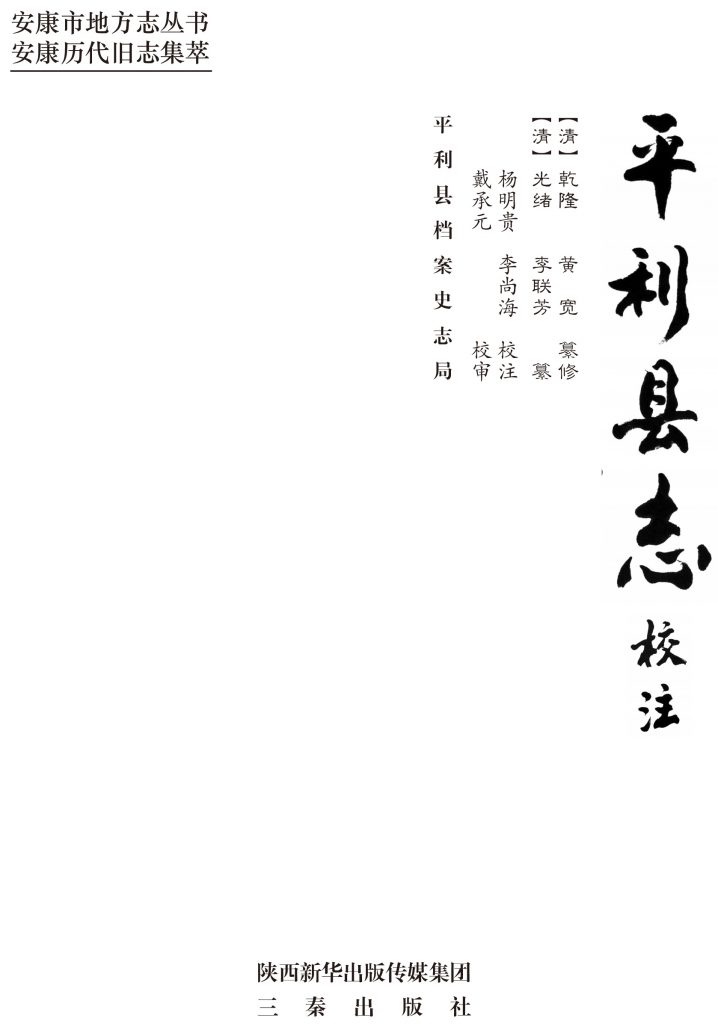 安康市地方志丛书
安康历代旧志集萃
平利县志校注
【清】乾隆 黄宽 纂修
【清】光绪 李联芳 纂
杨明贵 李尚海 校注
戴承元 校审
平利县档案史志局
陕西新华出版传媒集团
三秦出版社